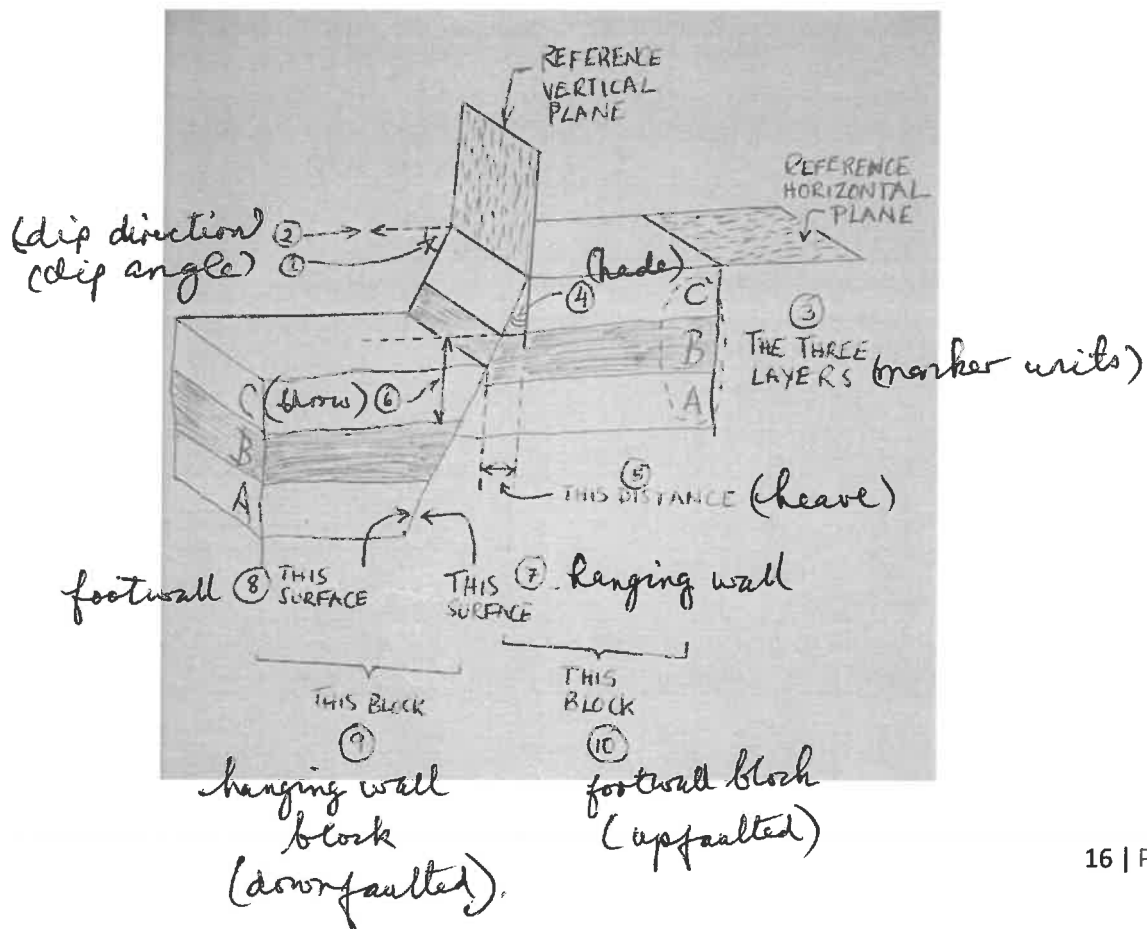 REFERENCE
VERTICAL
PLANE
REFERENCE
HORIZONTAL
PLANE
(dip direction) ②
(dip angle) ①
(hade)
④
C
B
A
③
THE THREE
LAYERS (marker units)
C (throw) ⑥
B
A
⑤
THIS DISTANCE (heave)
footwall ⑧ THIS
SURFACE
THIS ⑦ hanging wall
SURFACE
THIS BLOCK
⑨
hanging wall
block
(downfaulted).
THIS
BLOCK
⑩
footwall block
(upfaulted)
16 | P